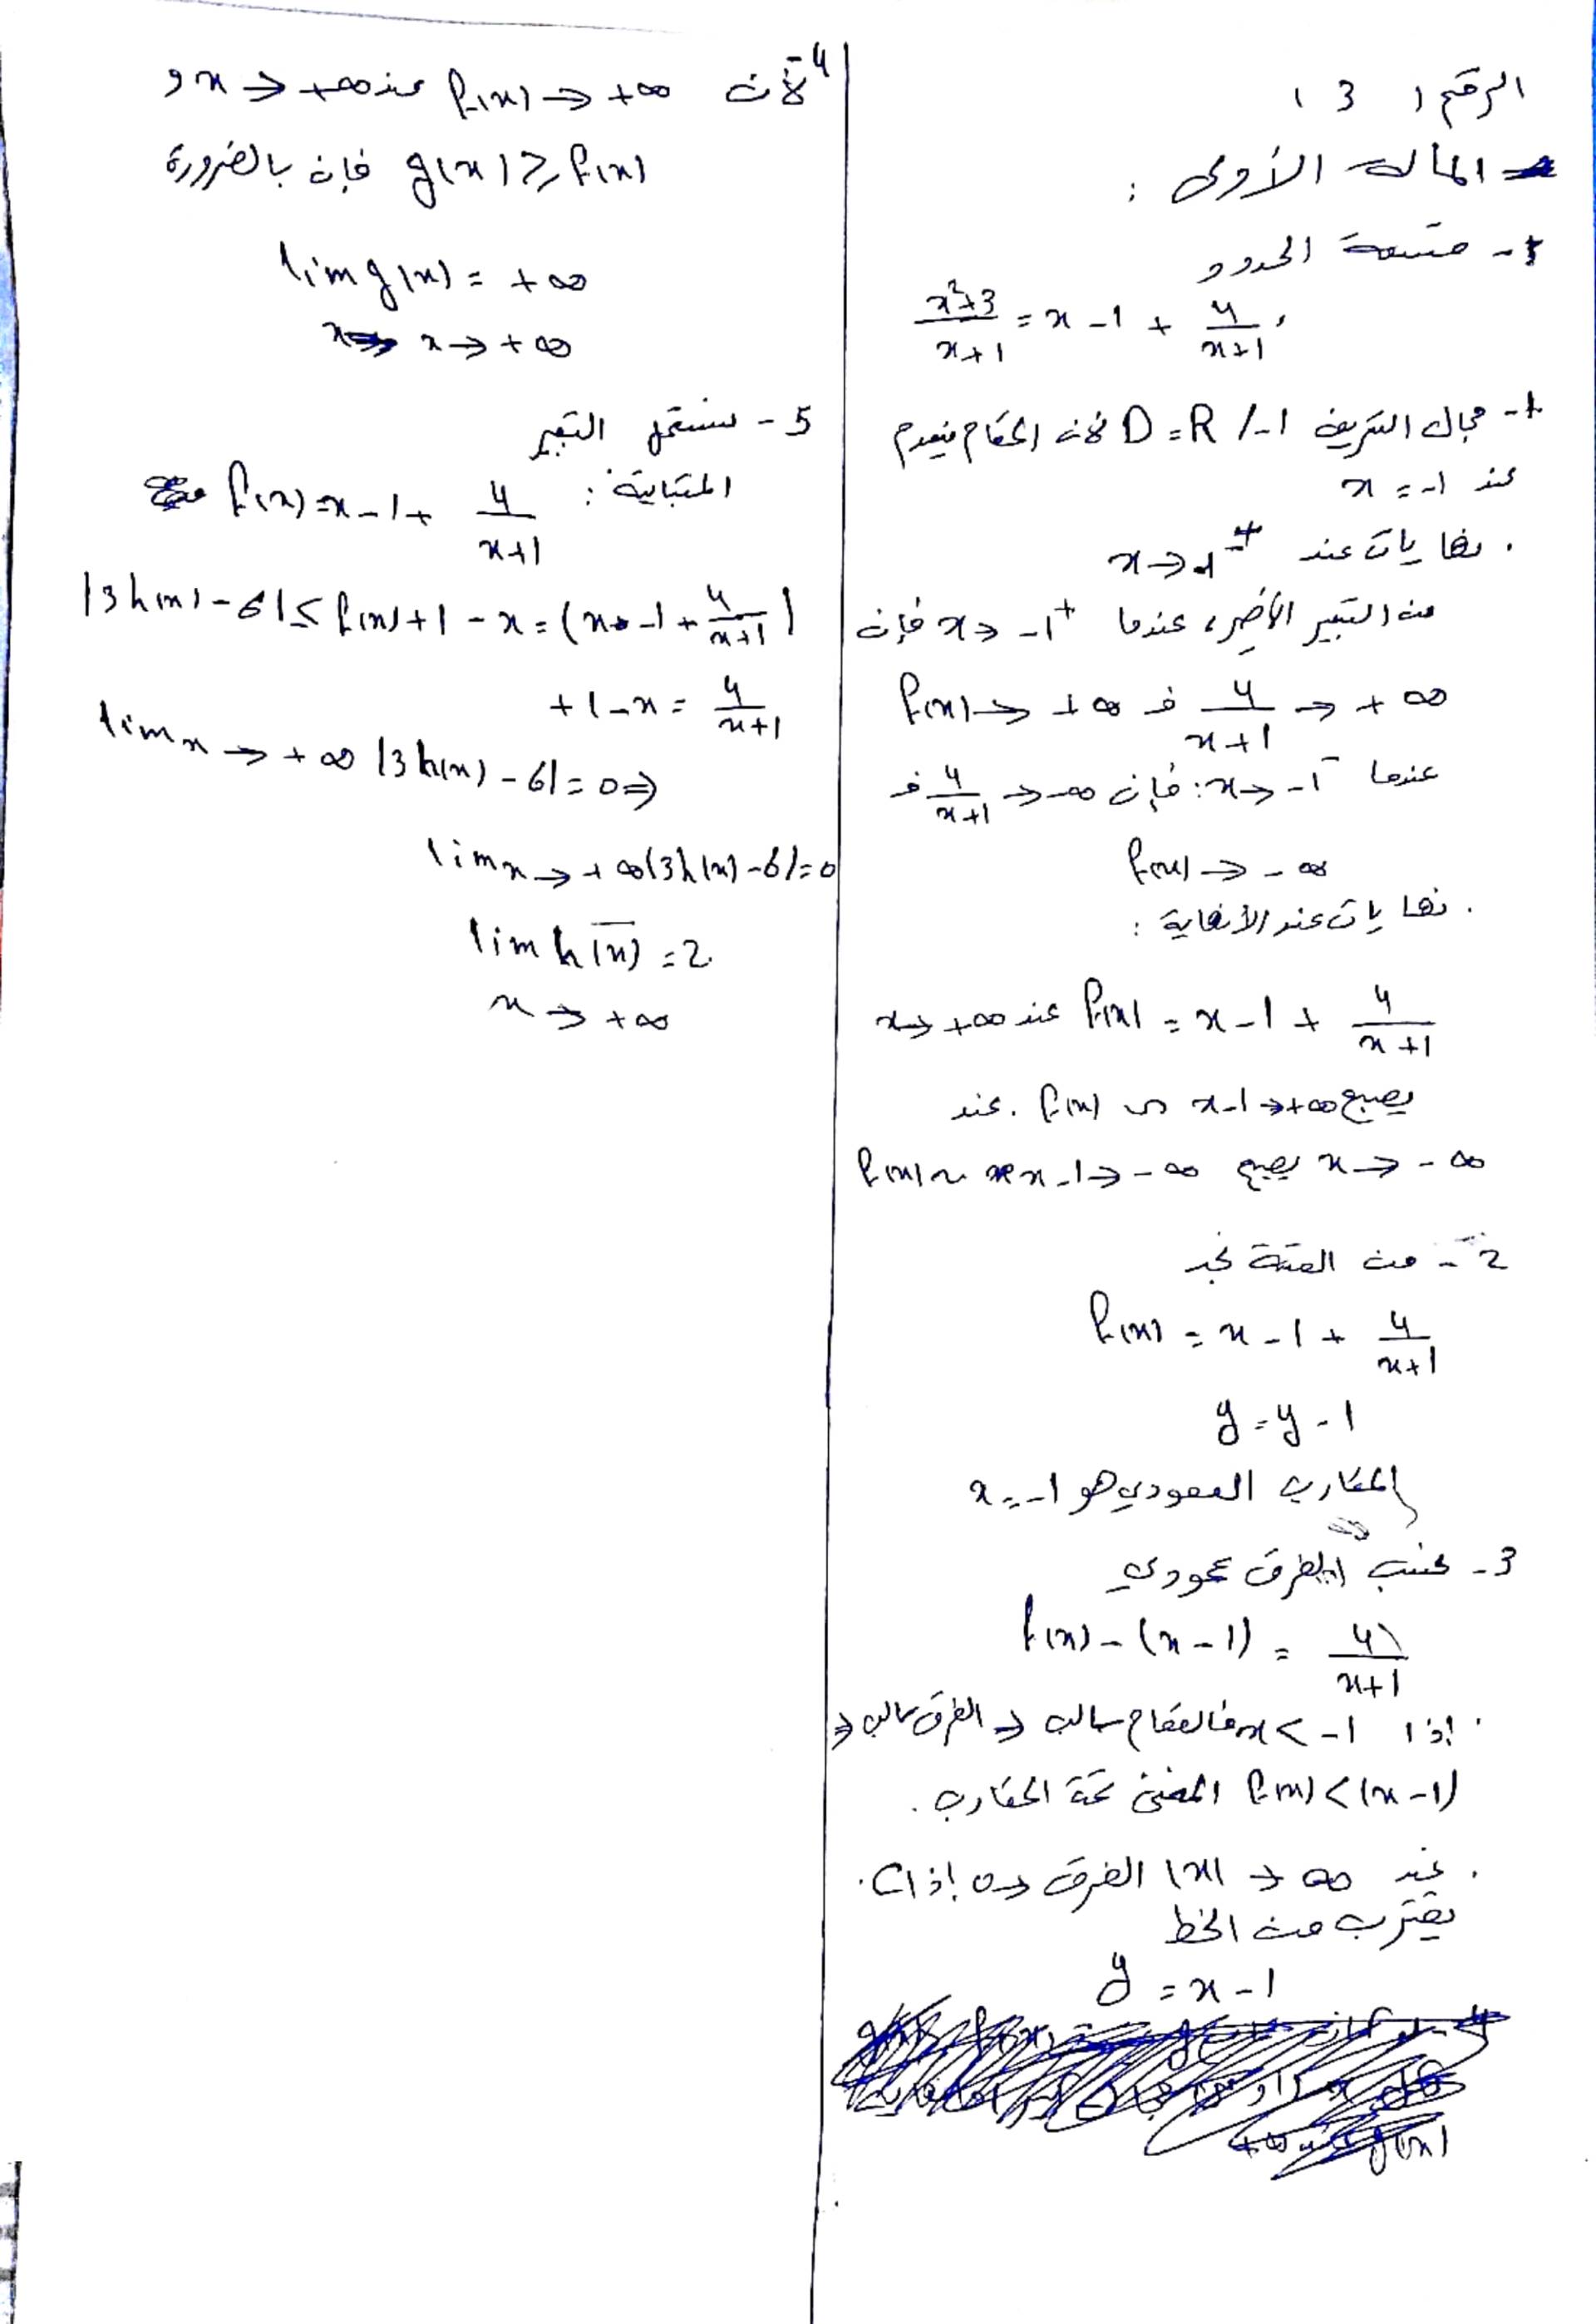 الرقم ( 3 )
المسألة الأولى :
1- قسمة الحدود
x²+3/x+1 = x - 1 + 4/x+1 ،
1- مجال التعريف D = R /-1 لأن المقام ينعدم
عند x = -1
. نهايات عند x → -1⁺
من التعبير الأخير ، عندما x → -1⁺ فإن
4/x+1 → +∞ و f(x) → +∞
عندما x → -1⁻ : فإن 4/x+1 → -∞ و
f(x) → -∞
. نهايات عند الأنهاية :
f(x) = x - 1 + 4/x+1 عند x → +∞
يصبح f(x) ~ x-1 → +∞ . عند
x → -∞ يصبح f(x) ~ x-1 → -∞
2- من القسمة نجد
f(x) = x - 1 + 4/x+1
y = y - 1
المقارب العمودي هو x = -1
3- نحسب الفرق عمودي
f(x) - (x - 1) = 4/x+1
. إذا x < -1 فالمقام سالب ⇒ الفرق سالب ⇒
f(x) < (x-1) المنحنى تحت المقارب .
. عند |x| → ∞ الفرق → 0 إذا C
يقترب من الخط
y = x - 1
4- لأن f(x) → +∞ عند x → +∞ و
g(x) ≥ f(x) فإن بالضرورة
lim g(x) = +∞
x → +∞
5- سنستعمل التعبير
المتباينة : f(x) = x - 1 + 4/x+1
|3h(x) - 6| ≤ f(x) + 1 - x = (x - 1 + 4/x+1)
+ 1 - x = 4/x+1
lim x → +∞ |3h(x) - 6| = 0 ⇒
lim x → +∞ (3h(x) - 6) = 0
lim h(x) = 2
x → +∞